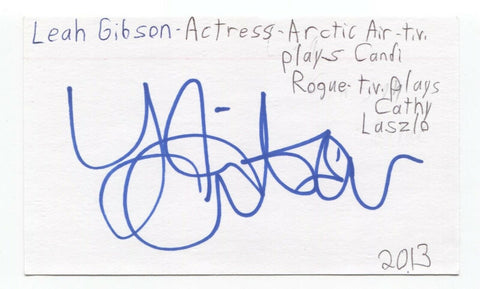 Leah Gibson-Actress-Arctic Air-t.v.
plays Candi
Rogue-t.v. plays
Cathy
Laszlo
2013